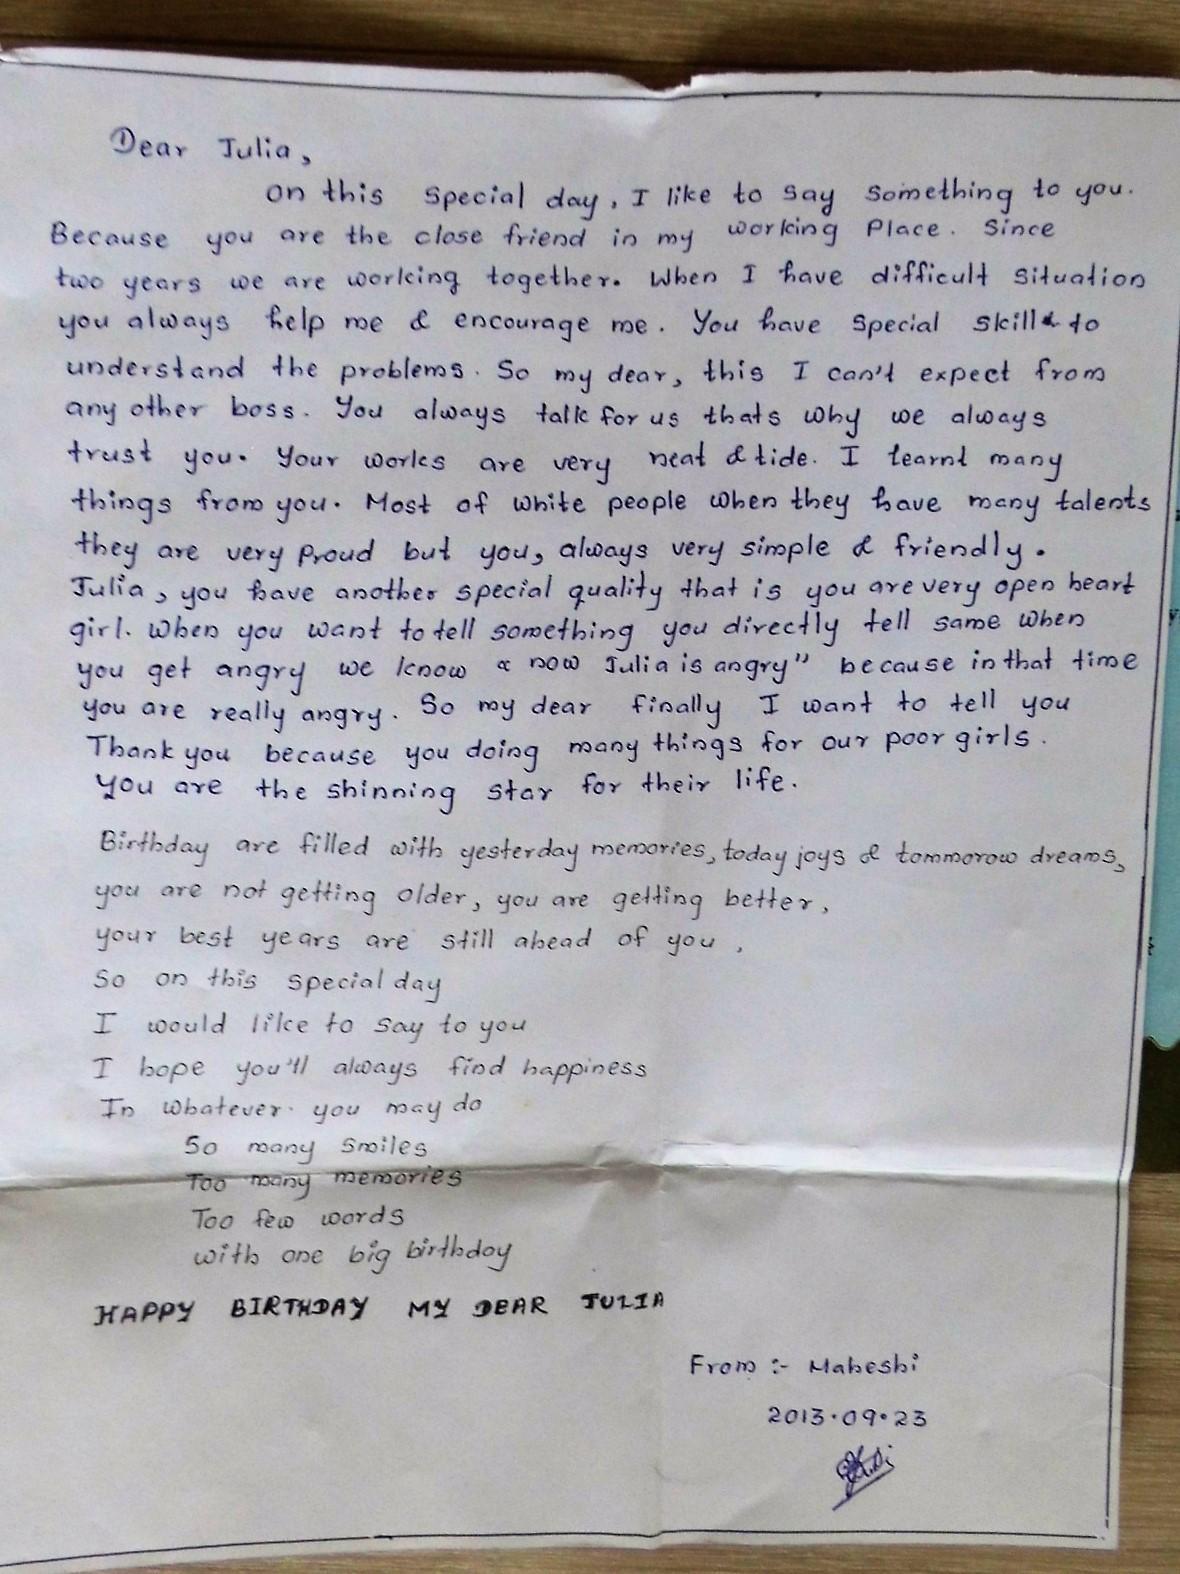 Dear Julia,
on this special day, I like to say something to you.
Because you are the close friend in my working Place. Since
two years we are working together. When I have difficult situation
you always help me & encourage me. You have special skill to
understand the problems. So my dear, this I can't expect from
any other boss. You always talk for us thats why we always
trust you. Your works are very neat & tide. I learnt many
things from you. Most of white people when they have many talents
they are very proud but you, always very simple & friendly.
Julia, you have another special quality that is you are very open heart
girl. When you want to tell something you directly tell same when
you get angry we know "now Julia is angry" because in that time
you are really angry. So my dear finally I want to tell you
Thank you because you doing many things for our poor girls.
You are the shinning star for their life.
Birthday are filled with yesterday memories, today joys & tommorow dreams,
you are not getting older, you are getting better,
your best years are still ahead of you,
So on this special day
I would like to say to you
I hope you'll always find happiness
In whatever you may do
So many smiles
Too many memories
Too few words
with one big birthday
HAPPY BIRTHDAY MY DEAR JULIA
From :- Maheshi
2013.09.23